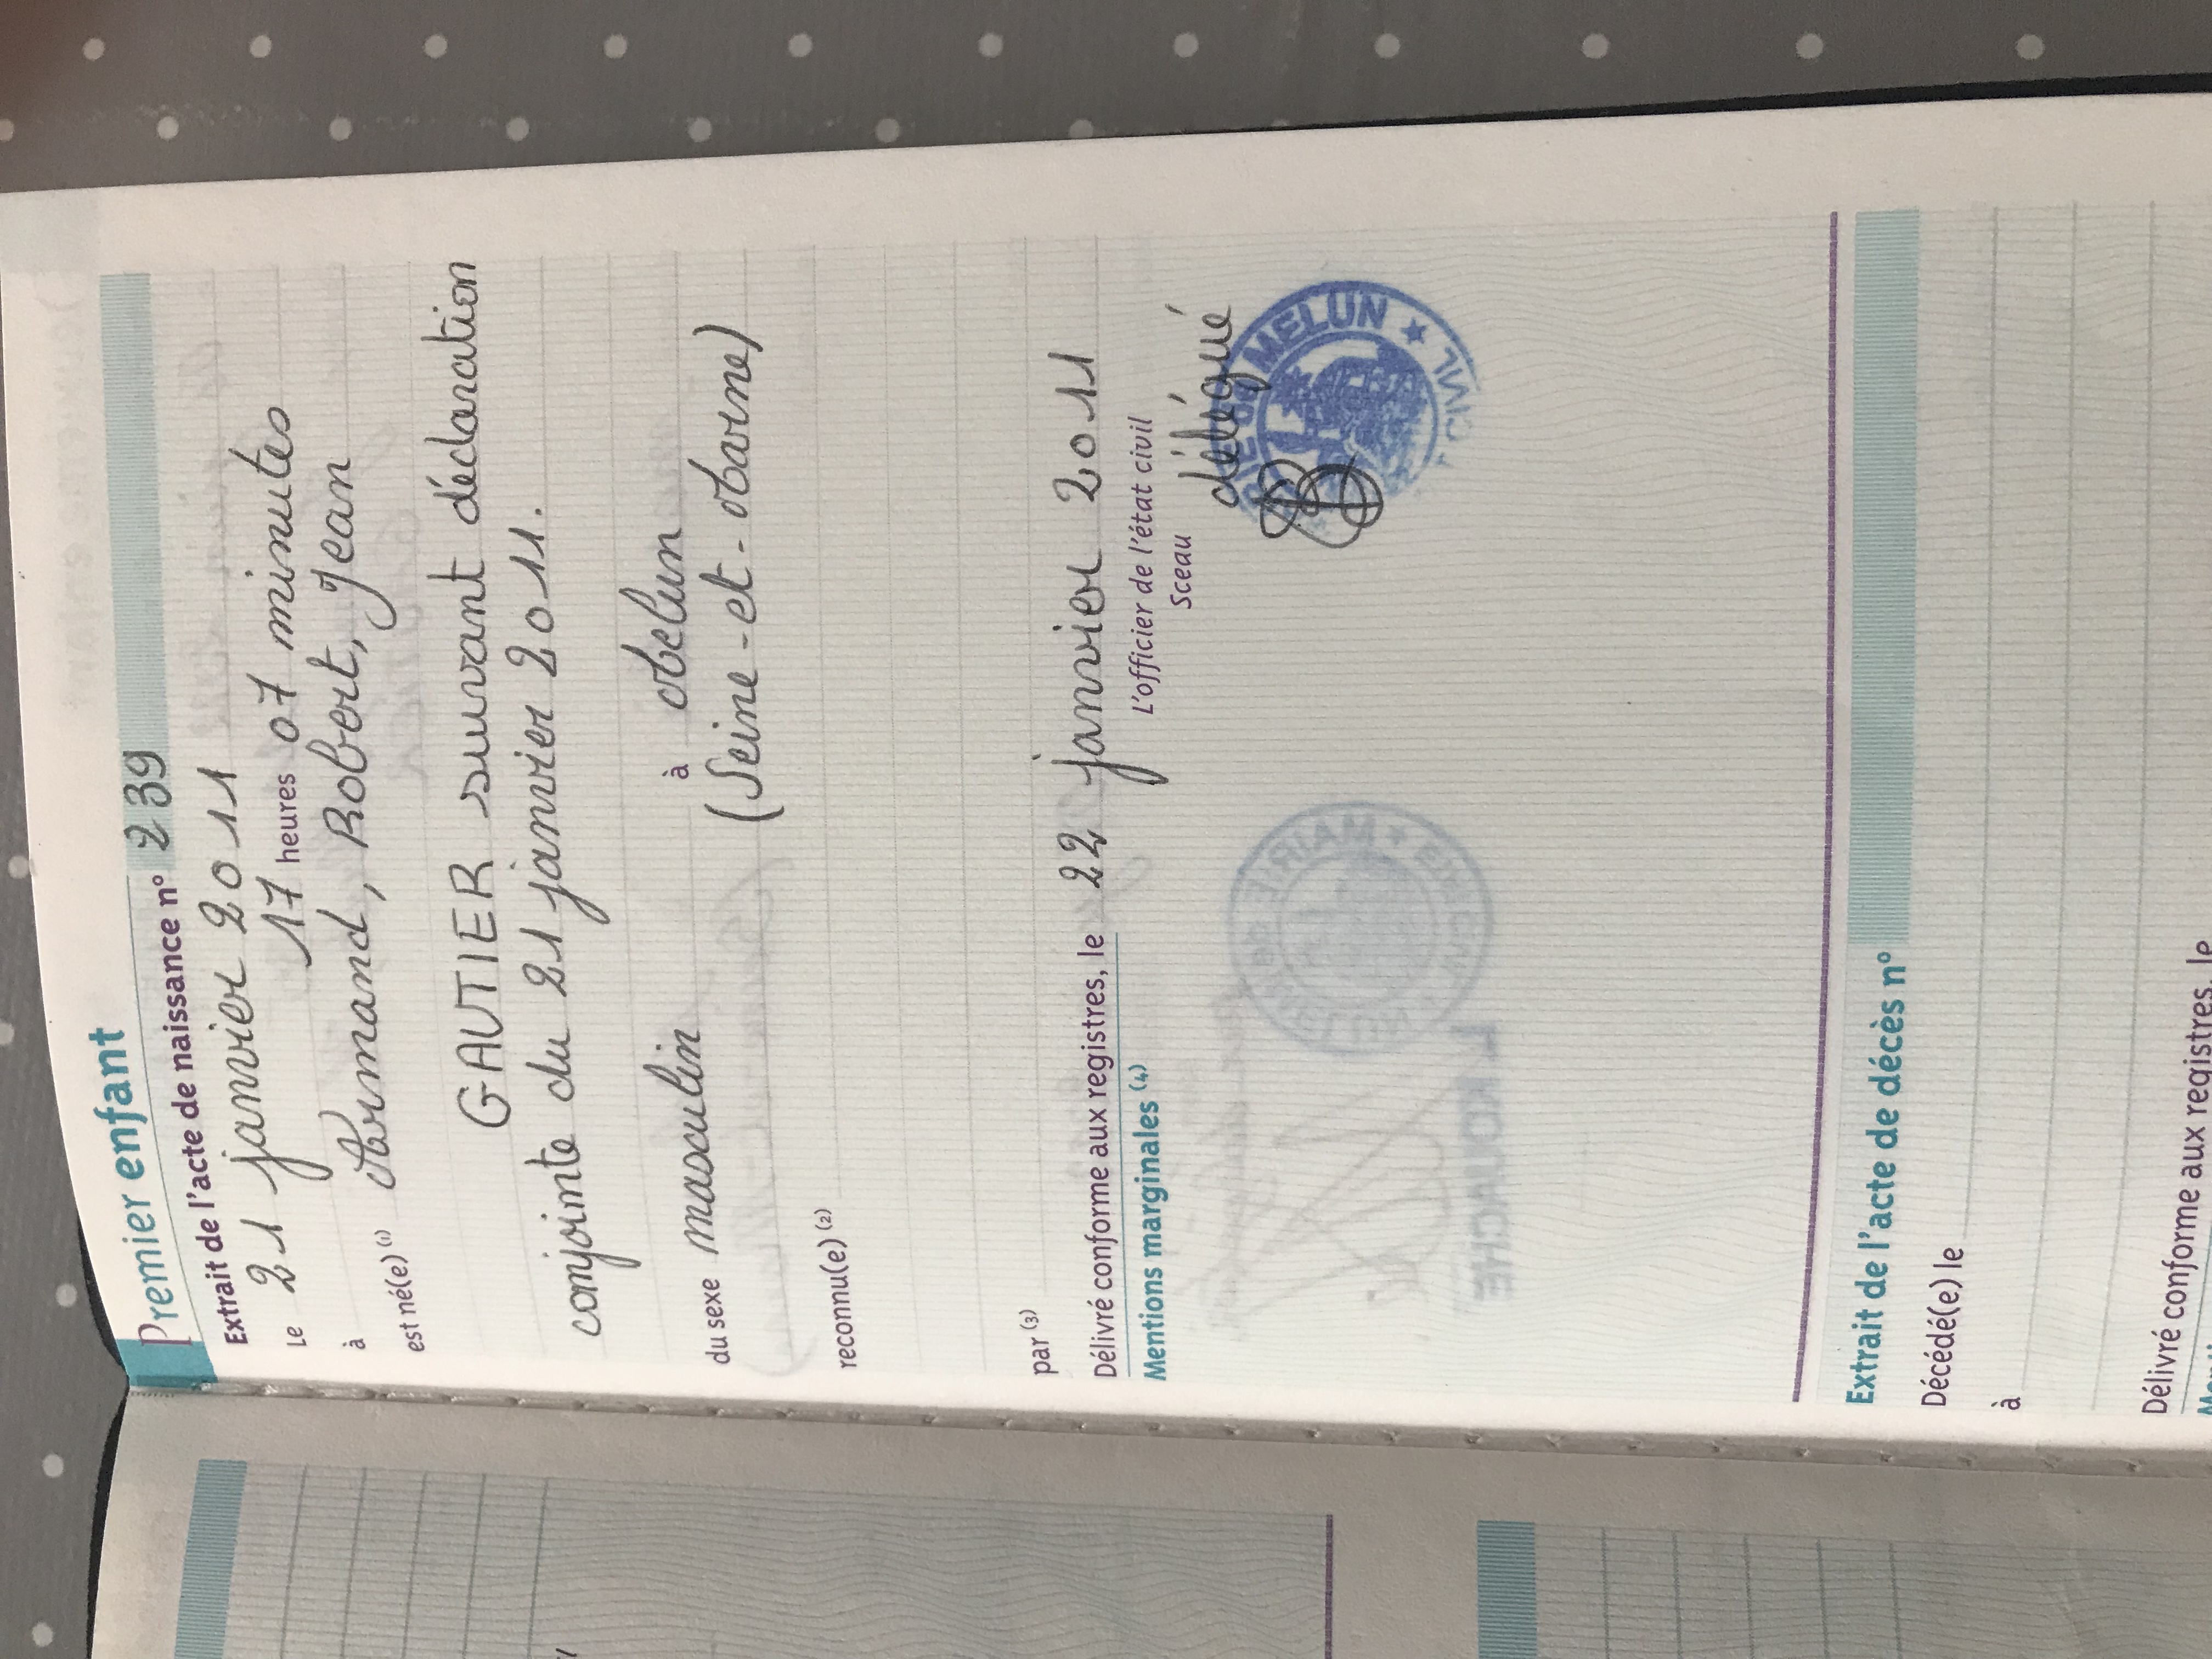 Premier enfant
Extrait de l'acte de naissance n° 239
Le 21 janvier 2011
à 17 heures 07 minutes
est né(e) (1) Armand, Robert, Jean
GAUTIER suivant déclaration
conjointe du 21 janvier 2011.
du sexe masculin à Melun
(Seine-et-Marne)
reconnu(e) (2)
par (3)
Délivré conforme aux registres, le 22 janvier 2011
Mentions marginales (4)
L'officier de l'état civil
Sceau
délégué
MELUN ★
Extrait de l'acte de décès n°
Décédé(e) le
à
Délivré conforme aux registres, le